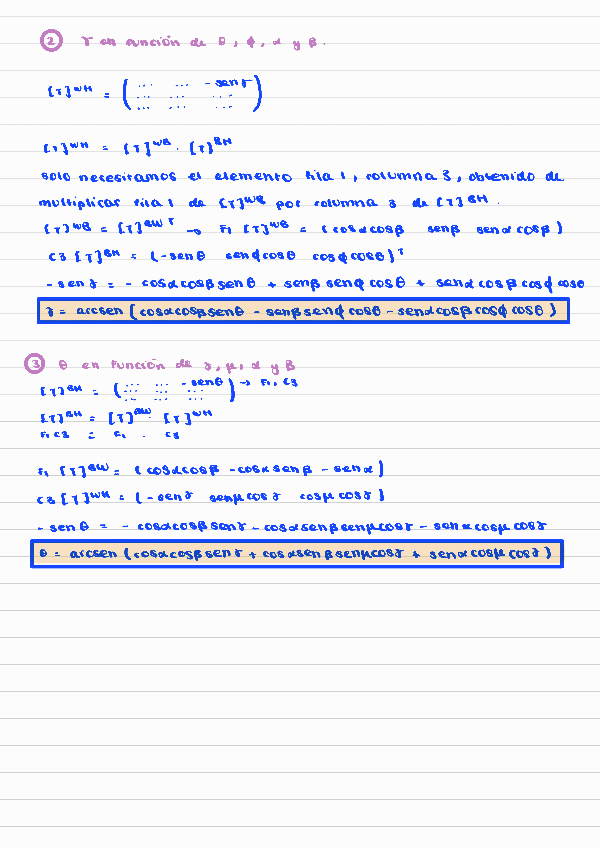 2 γ en función de θ, ϕ, α y β.
[T]^WH = ( ... ... -senγ
... ... ...
... ... ... )
[T]^WH = [T]^WB · [T]^BH
solo necesitamos el elemento fila 1, columna 3, obtenido de
multiplicar fila 1 de [T]^WB por columna 3 de [T]^BH.
[T]^WB = [T]^BW T → F1 [T]^WB = (cosαcosβ senβ senαcosβ)
C3 [T]^BH = (-senθ senϕcosθ cosϕcosθ)^T
-senγ = -cosαcosβsenθ + senβsenϕcosθ + senαcosβcosϕcosθ
γ = arcsen (cosαcosβsenθ - senβsenϕcosθ - senαcosβcosϕcosθ)
3 θ en función de γ, μ, α y β
[T]^BH = ( ... ... -senθ
... ... ...
... ... ... ) → F1, C3
[T]^BH = [T]^BW · [T]^WH
F1C3 = F1 · C3
F1 [T]^BW = (cosαcosβ -cosαsenβ -senα)
C3 [T]^WH = (-senγ senμcosγ cosμcosγ)
-senθ = -cosαcosβsenγ - cosαsenβsenμcosγ - senαcosμcosγ
θ = arcsen (cosαcosβsenγ + cosαsenβsenμcosγ + senαcosμcosγ)